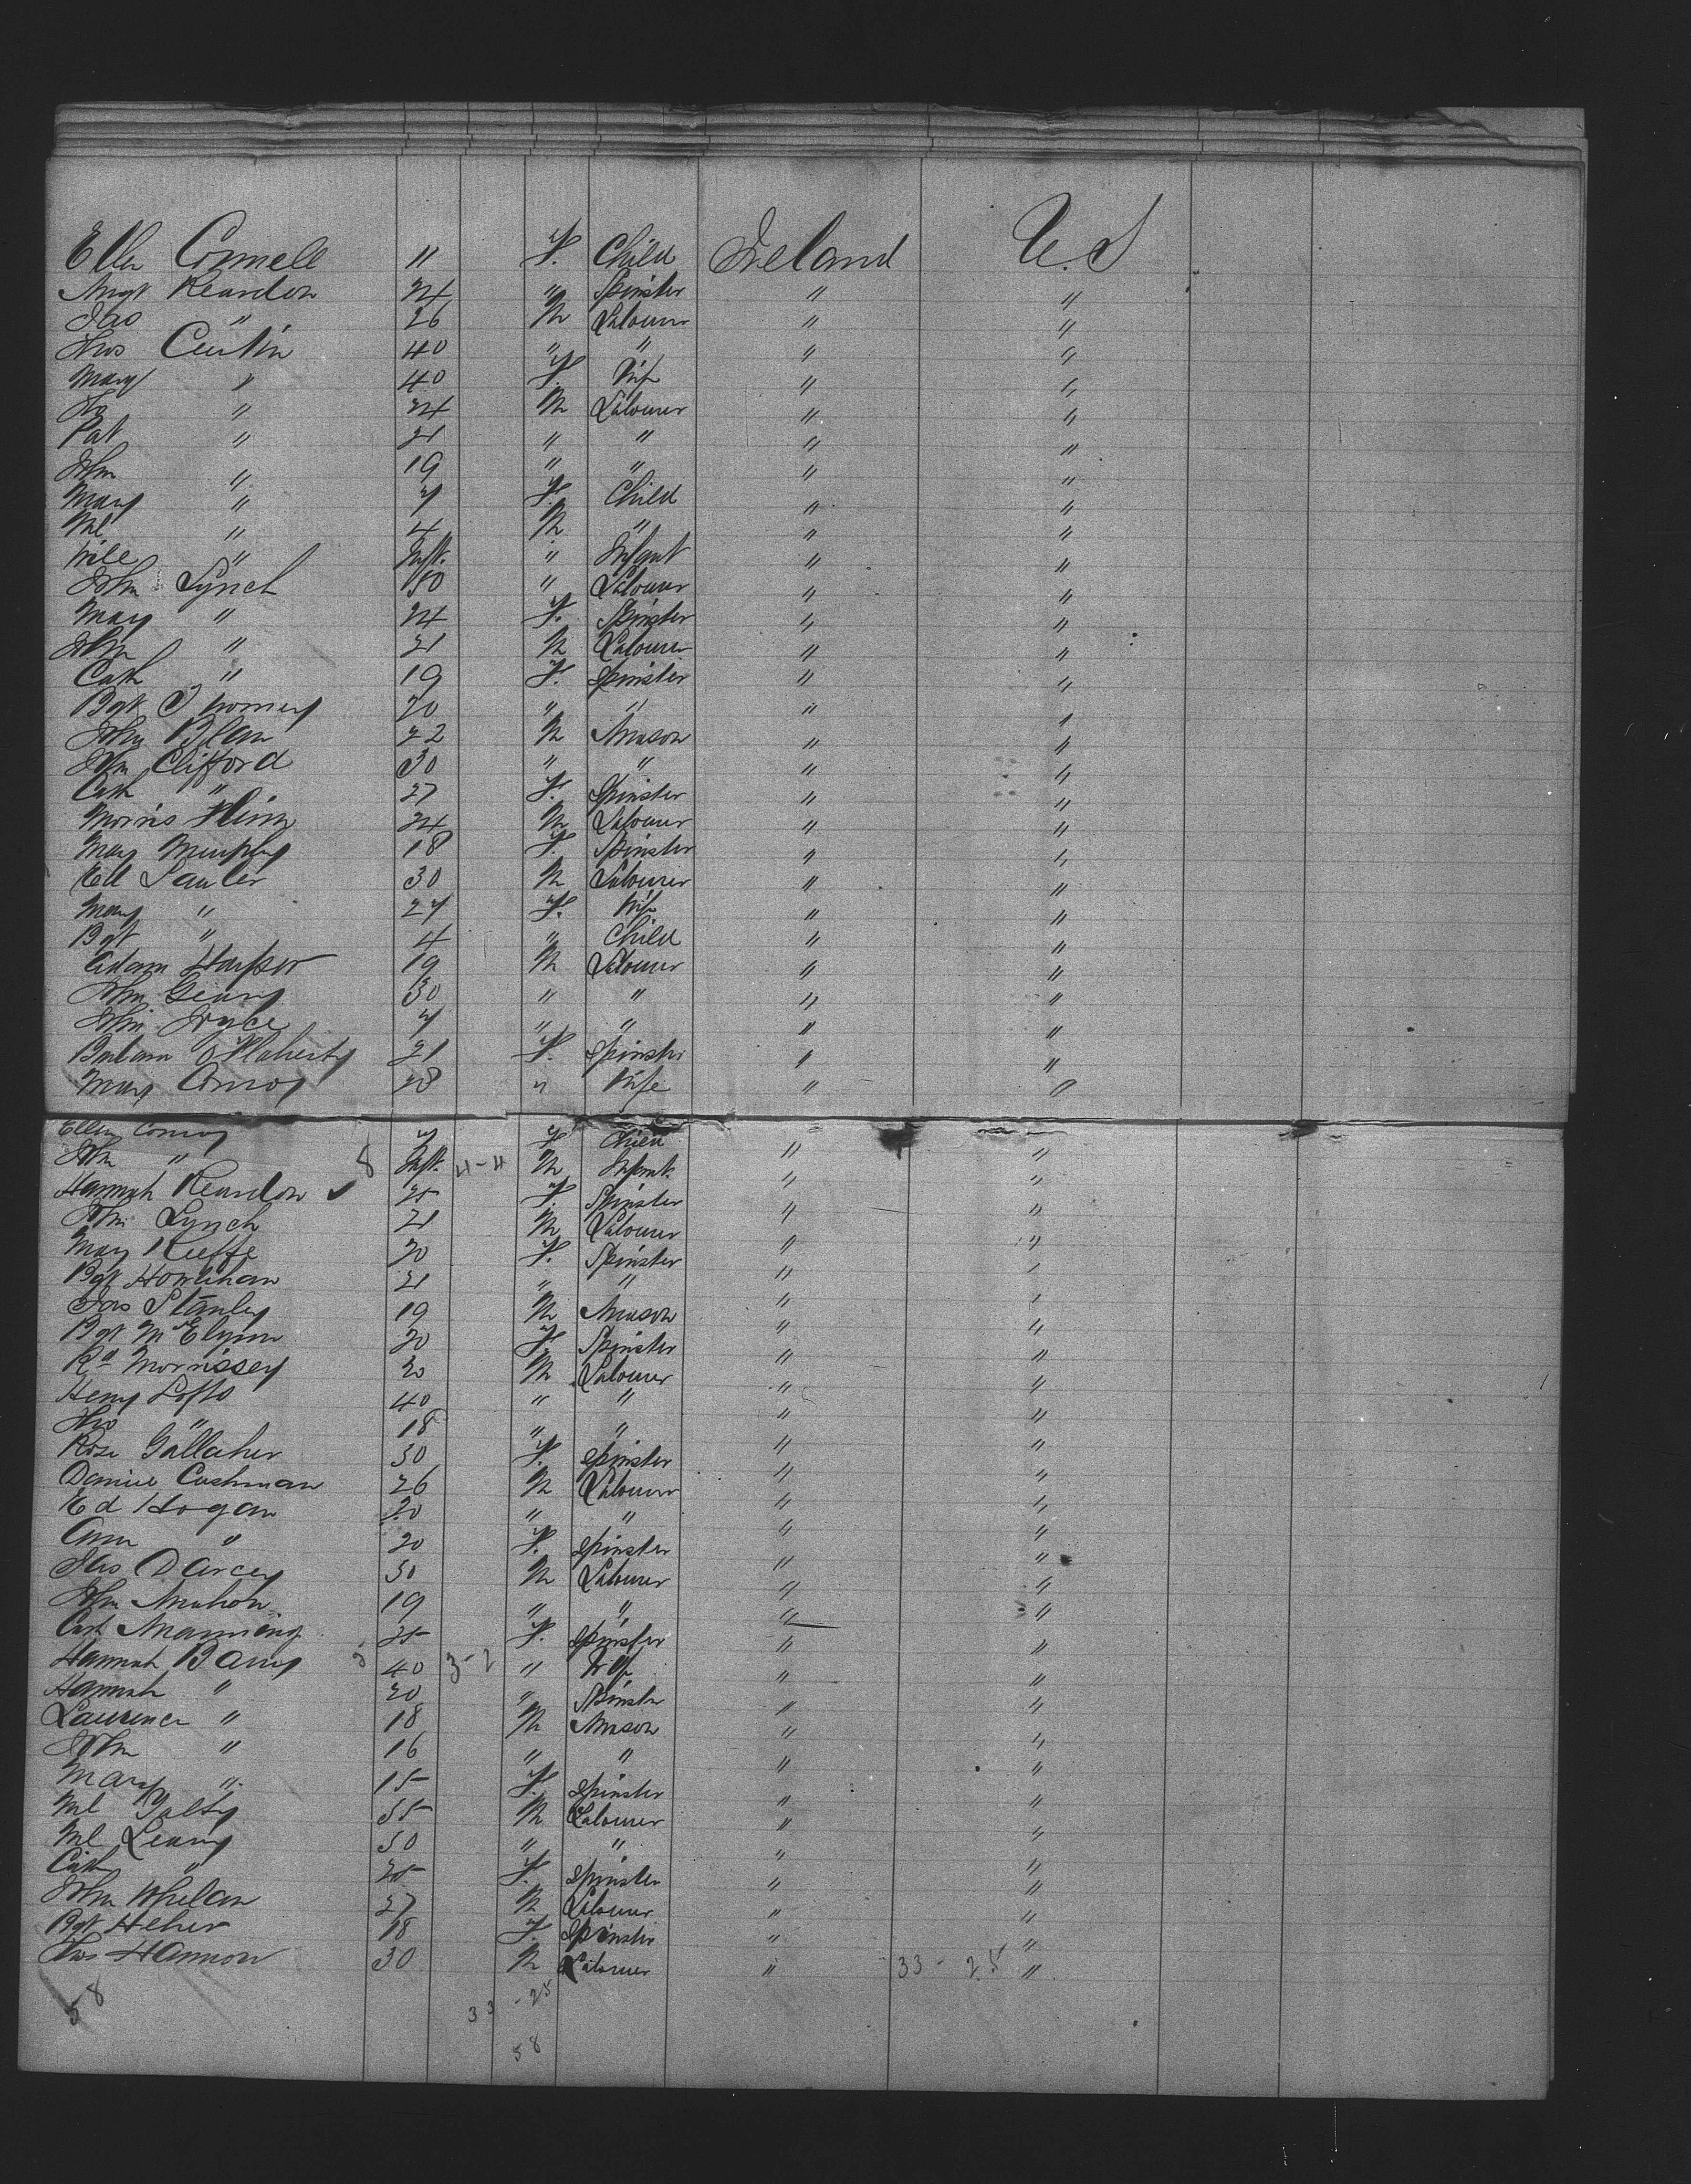 Ellen Connell 11 F. Child Ireland U.S
Mgt Reardon 24 " Spinster " "
Jas " 26 M Labourer " "
Thos Curtin 40 " " " "
Mary " 40 F. Wife " "
" 24 M Labourer " "
Pat " 21 " " " "
John " 19 " " " "
Mary " 7 F. Child " "
Ml " 4 M " " "
Will " Inft. " Infant " "
John Lynch 50 " Labourer " "
Mary " 24 F. Spinster " "
John " 21 M Labourer " "
Cath " 19 F. Spinster " "
Bgt Twomey 20 " " " "
John 22 M Mason " "
John Clifford 30 " " " "
Cath " 27 F. Spinster " "
Morris Flinn 24 M Labourer " "
Mary Murphy 18 F. Spinster " "
Ed Lawler 30 M Labourer " "
Mary " 27 F. Wife " "
Bgt " 4 " Child " "
Adam Harper 19 M Labourer " "
John Geary 30 " " " "
John Joyce 7 " " " "
Barbara O'Flaherty 21 F. Spinster " "
Mary Conroy 28 " Wife " "
Ellen Conroy 7 F Child " "
John " 8 Inft. 4-4 M Infant " "
Hannah Reardon ✓ 25 F. Spinster " "
John Lynch 21 M Labourer " "
Mary Keeffe 20 F. Spinster " "
Bgt Hourihan 21 " " " "
Jas Stanley 19 M Mason " "
Bgt McElynn 20 F. Spinster " "
Rd Morrissey 20 M Labourer " "
Henry Lofto 40 " " " "
Thos " 18 " " " "
Rose Gallaher 30 F. Spinster " "
Daniel Cushman 26 M Labourer " "
Ed Hogan 20 " " " "
Ann " 20 F. Spinster " "
Jas D'Arcey 30 M Labourer " "
John Mahon 19 " " " "
Cath Manning 25 F. Spinster " "
Hannah Barry 5 40 3-2 " Wife " "
Hannah " 20 " Spinster " "
Laurence " 18 M Mason " "
John " 16 " " " "
Mary " 15 F. Spinster " "
Ml Galty 55 M Labourer " "
Ml Leary 50 " " " "
Cath " 25 F. Spinster " "
John Whelan 27 M Labourer " "
Bgt Heher 18 F. Spinster " "
Thos Hannon 30 M Labourer " 33-25 "
58 33-25
58